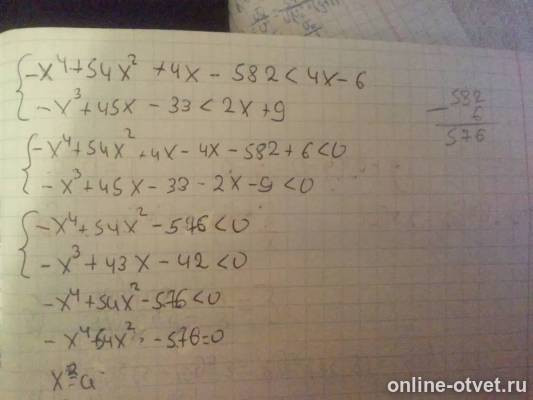 -x⁴+54x²+4x-582<4x-6
-x³+45x-33<2x+9
582
- 6
576
-x⁴+54x²+4x-4x-582+6<0
-x³+45x-33-2x-9<0
-x⁴+54x²-576<0
-x³+43x-42<0
-x⁴+54x²-576<0
-x⁴54x²-576=0
x²=a
online-otvet.ru